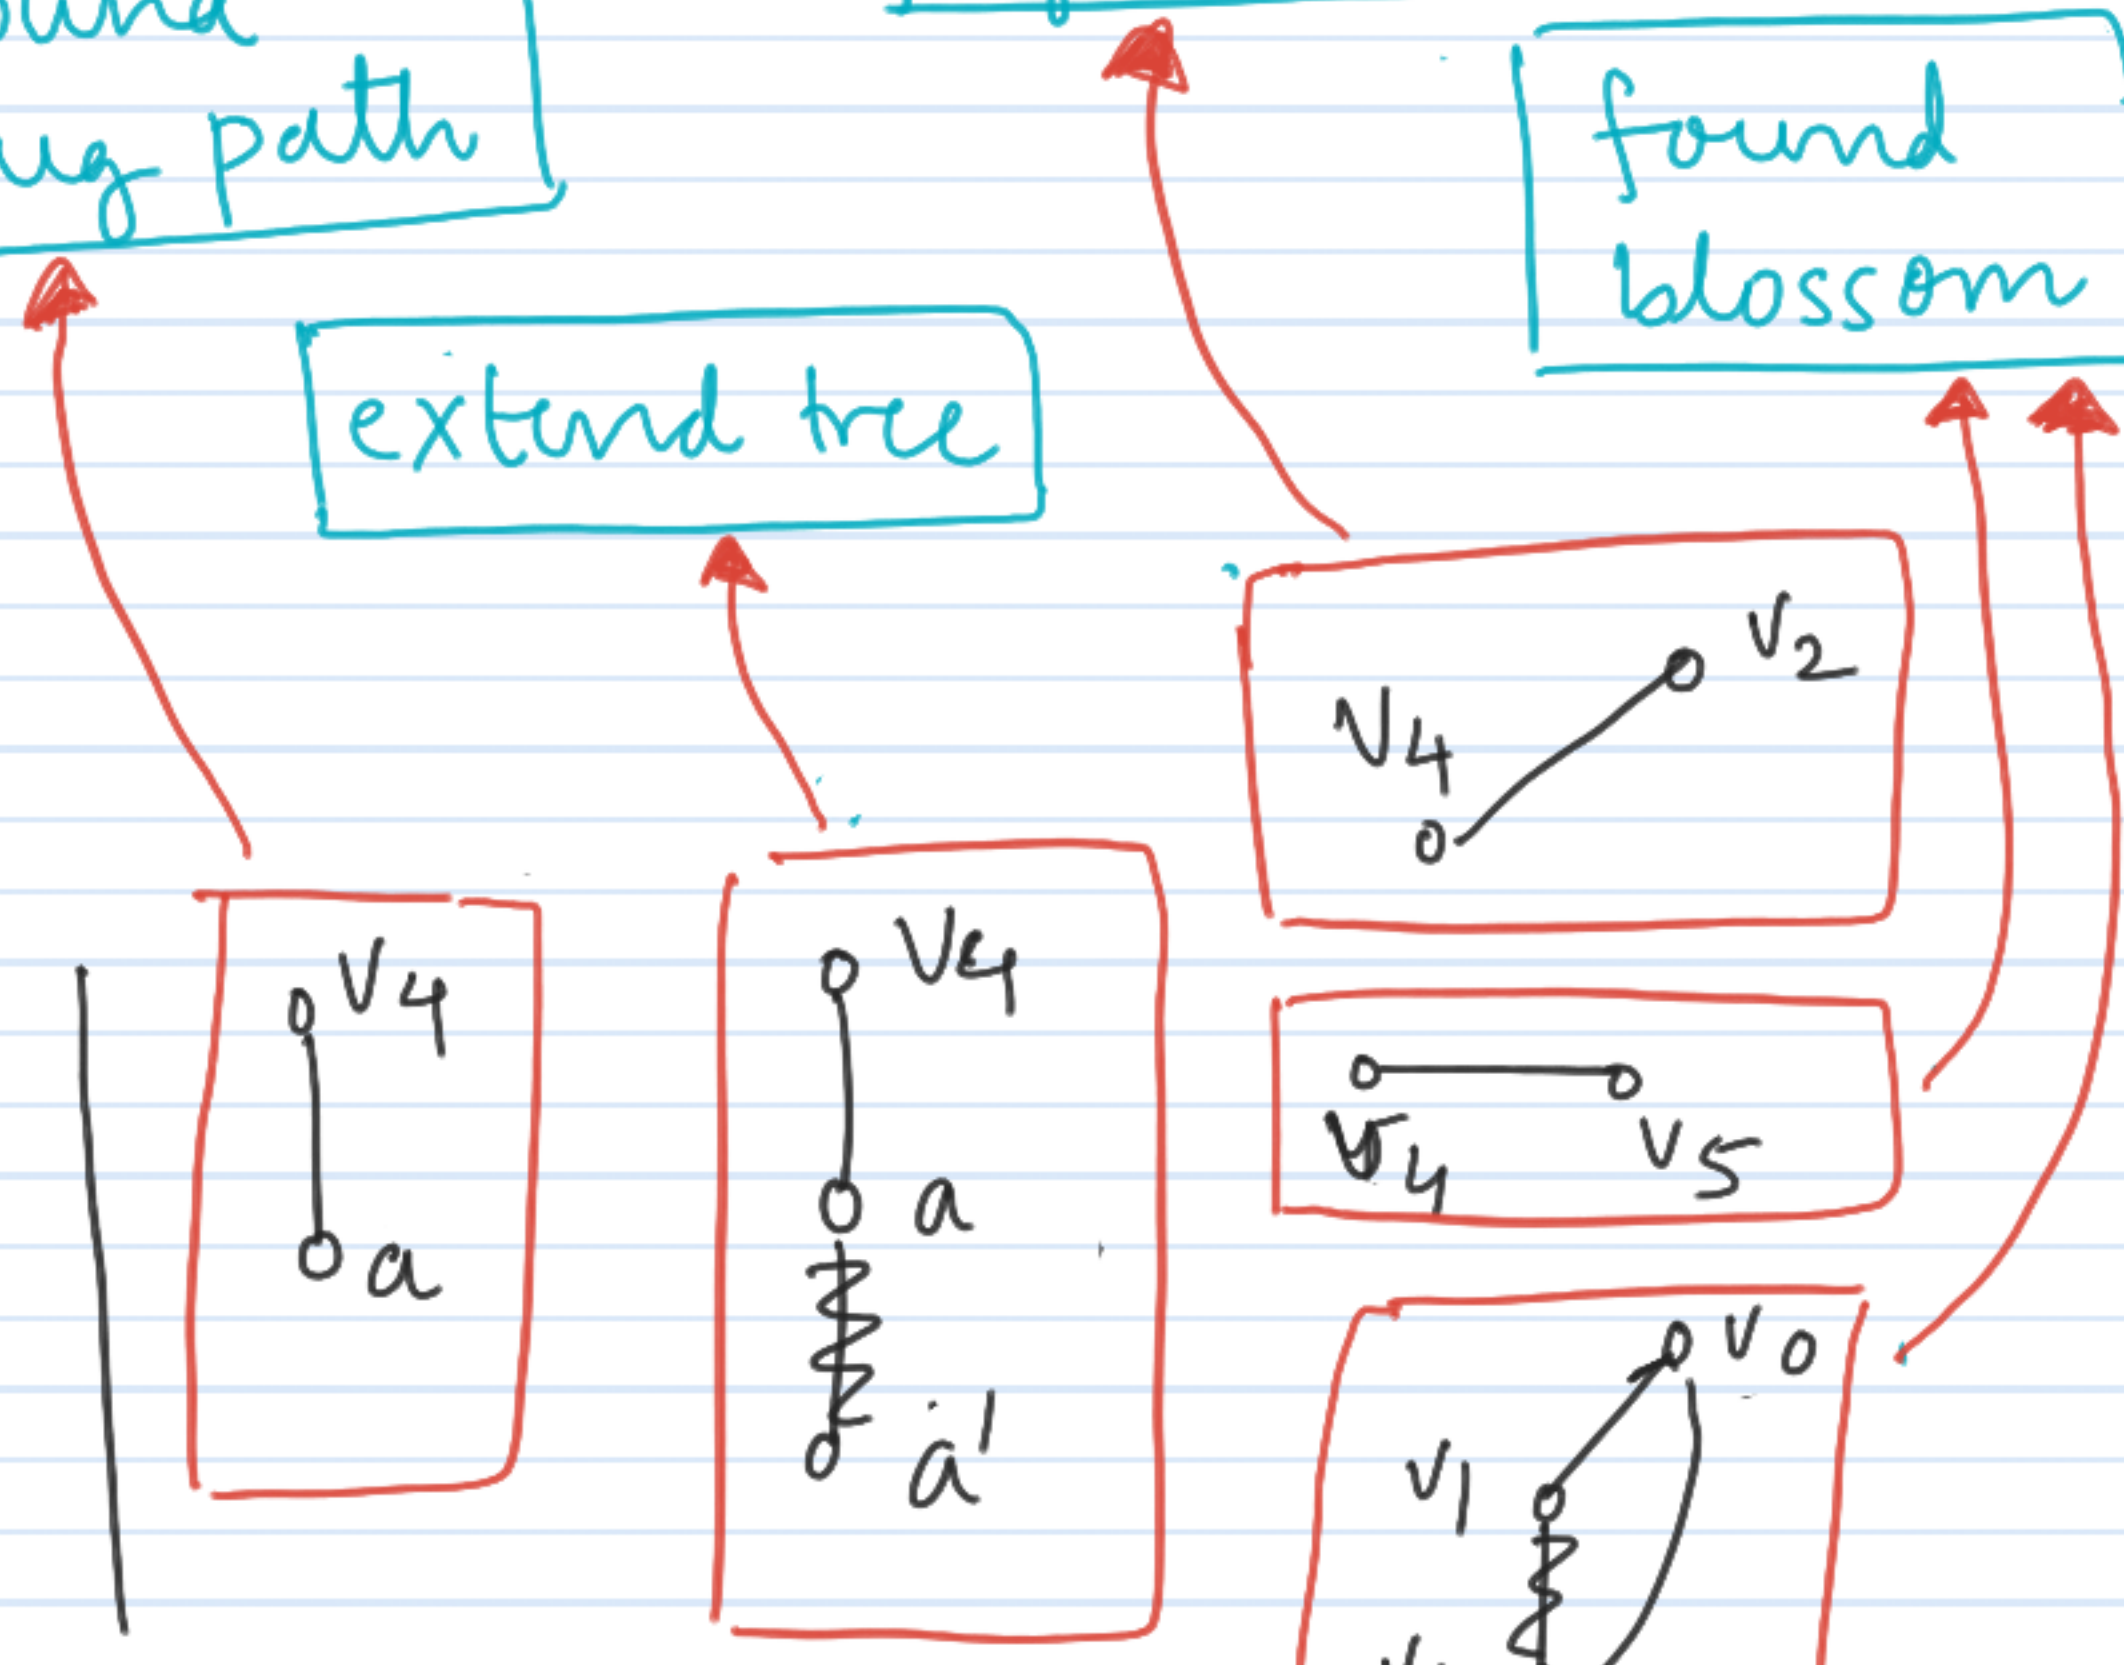 path
found
blossom
extend tree
V2
V4
V4
a
V4
a
a'
V4
V5
V0
V1